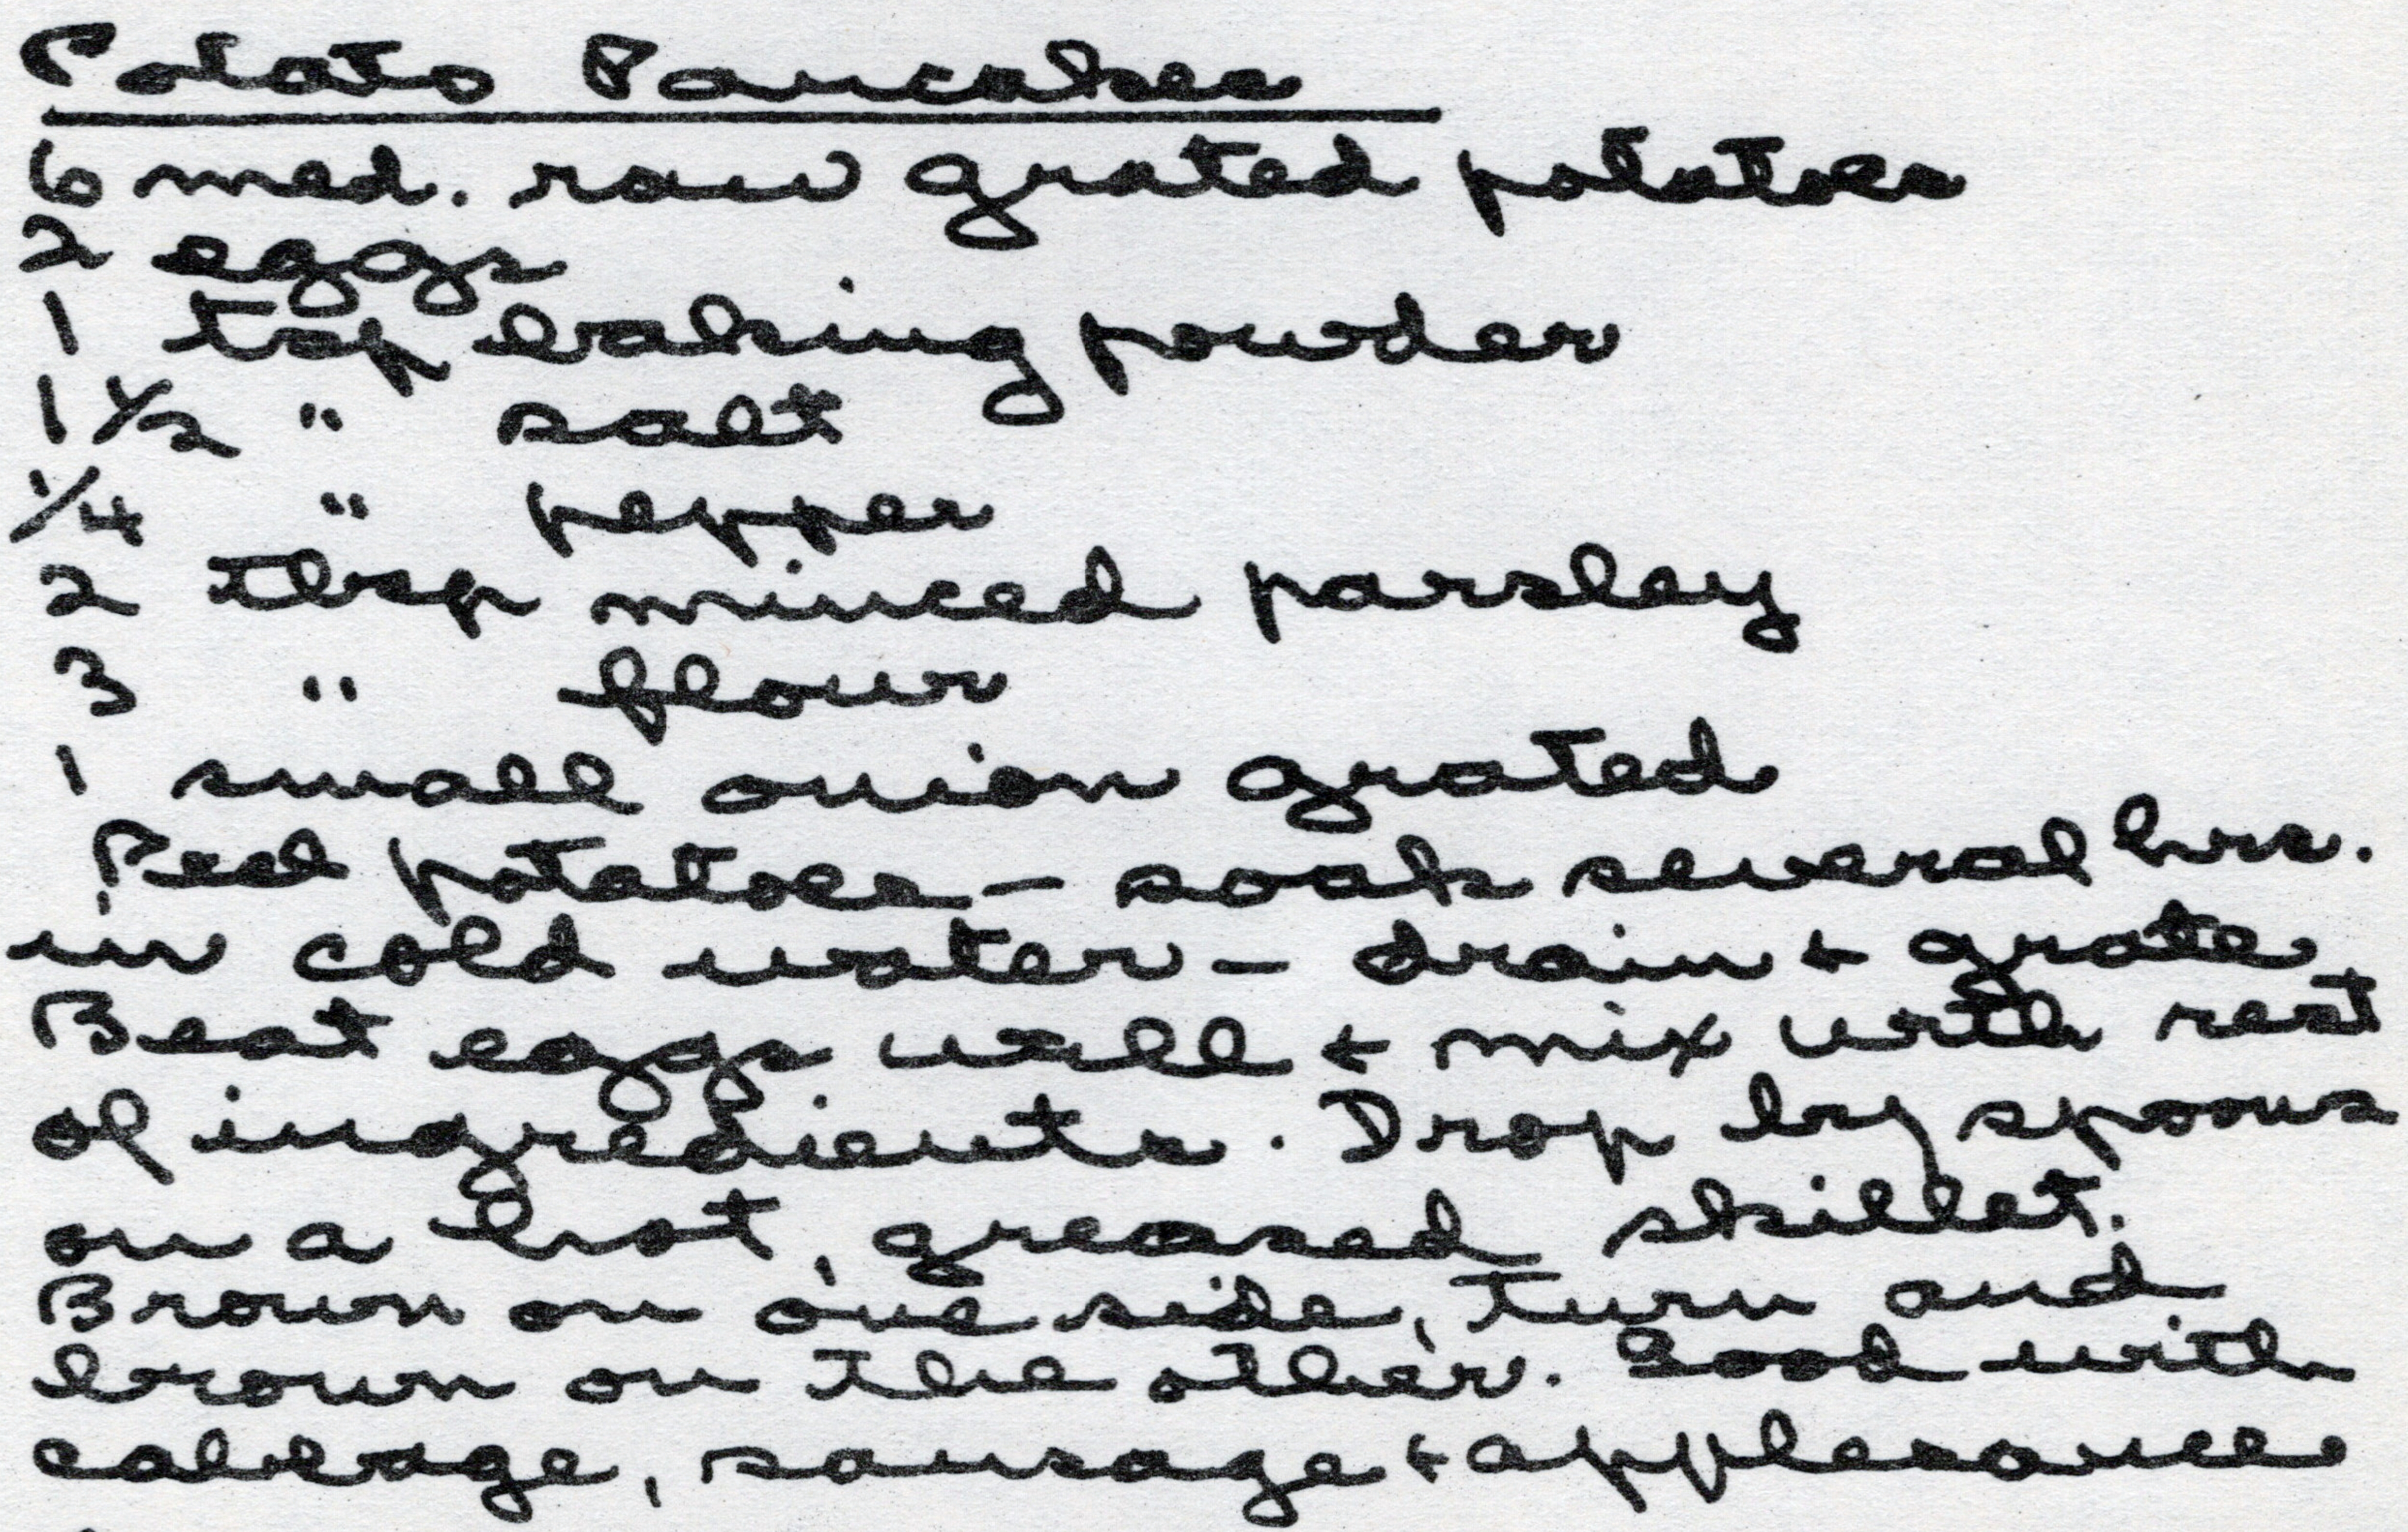 Potato Pancakes
6 med. raw grated potatoes
2 eggs
1 tsp baking powder
1 1/2 " salt
1/4 " pepper
2 tbsp minced parsley
3 " flour
1 small onion grated
Peel potatoes - soak several hrs.
in cold water - drain + grate
Beat eggs well + mix with rest
of ingredients. Drop by spoons
on a hot, greased skillet.
Brown on one side, turn and
brown on the other. Good with
cabbage, sausage + applesauce